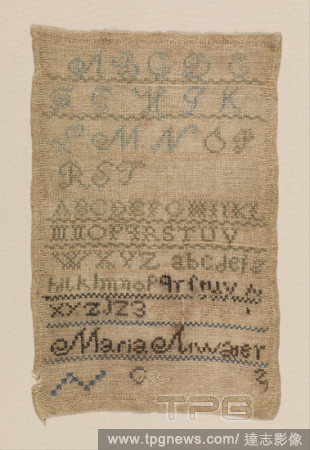 A B C D E
F G H I K
L M N O P
R S T
A B C D E F G H I K L
M N O P Q R S T U V
W X Y Z a b c d e f g
h i k l m n o p q r s t u v w
x y z 1 2 3
Maria
TPG
www.tpgnews.com/ 達志影像